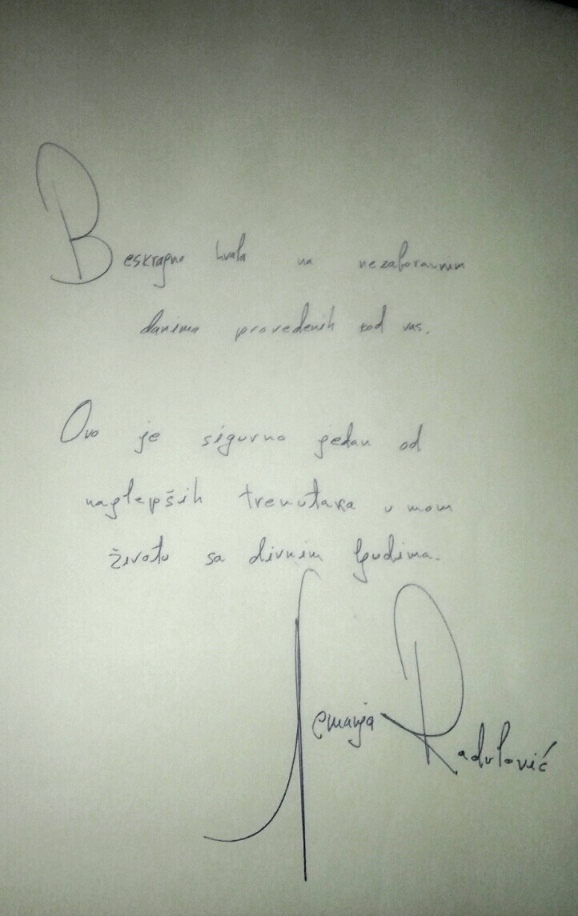 Beskrajno hvala na nezaboravnim
danima provedenih kod vas.
Ovo je sigurno jedan od
najlepših trenutaka u mom
životu sa divnim ljudima.
Nemanja Radulović